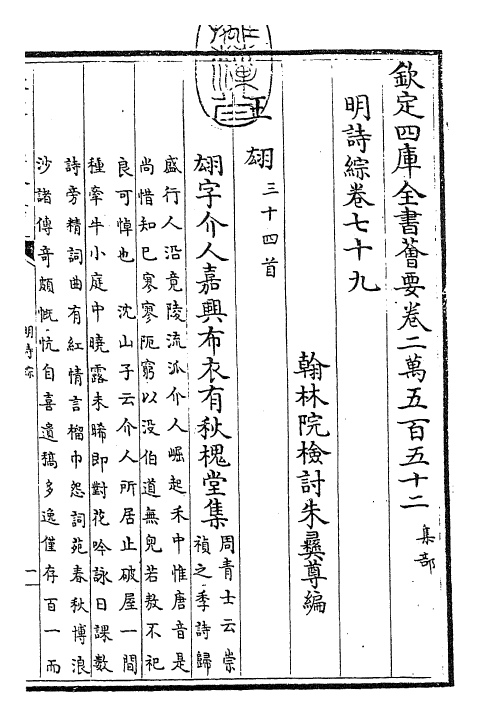 欽定四庫全書薈要卷二萬五百五十二 集部
明詩綜卷七十九
翰林院檢討朱彝尊編
王翃 三十四首
翃字介人嘉興布衣有秋槐堂集 周青士云崇
禎之季詩歸
盛行人沿竟陵流派介人崛起禾中惟唐音是
尚惜知已寥寥阨窮以没伯道無兒若敖不祀
良可悼也 沈山子云介人所居止破屋一間
種牽牛小庭中曉露未晞即對花吟詠日課數
詩旁精詞曲有紅情言榴巾怨詞苑春秋博浪
沙諸傳奇頗慨忼自喜遺稿多逸僅存百一而
明詩綜
一